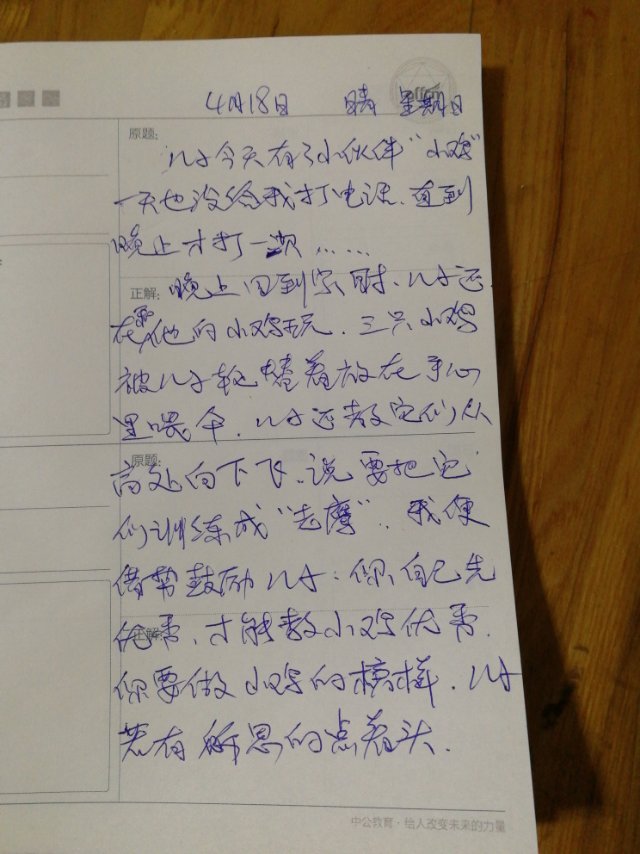 4月18日 晴 星期日
原题:
儿子今天有了小伙伴"小鸡"
一天也没给我打电话.直到
晚上才打一次……
正解:
晚上回到家时.儿子还
在和他的小鸡玩.三只小鸡
被儿子轮替着放在手心
里喂伞.儿子还教它们从
原题:
高处向下飞.说要把它
们训练成"老鹰".我便
借势鼓励儿子:你自己先
正解:
优秀.才能教小鸡优秀.
你要做小鸡的榜样.儿子
若有所思的点着头.
中公教育·给人改变未来的力量